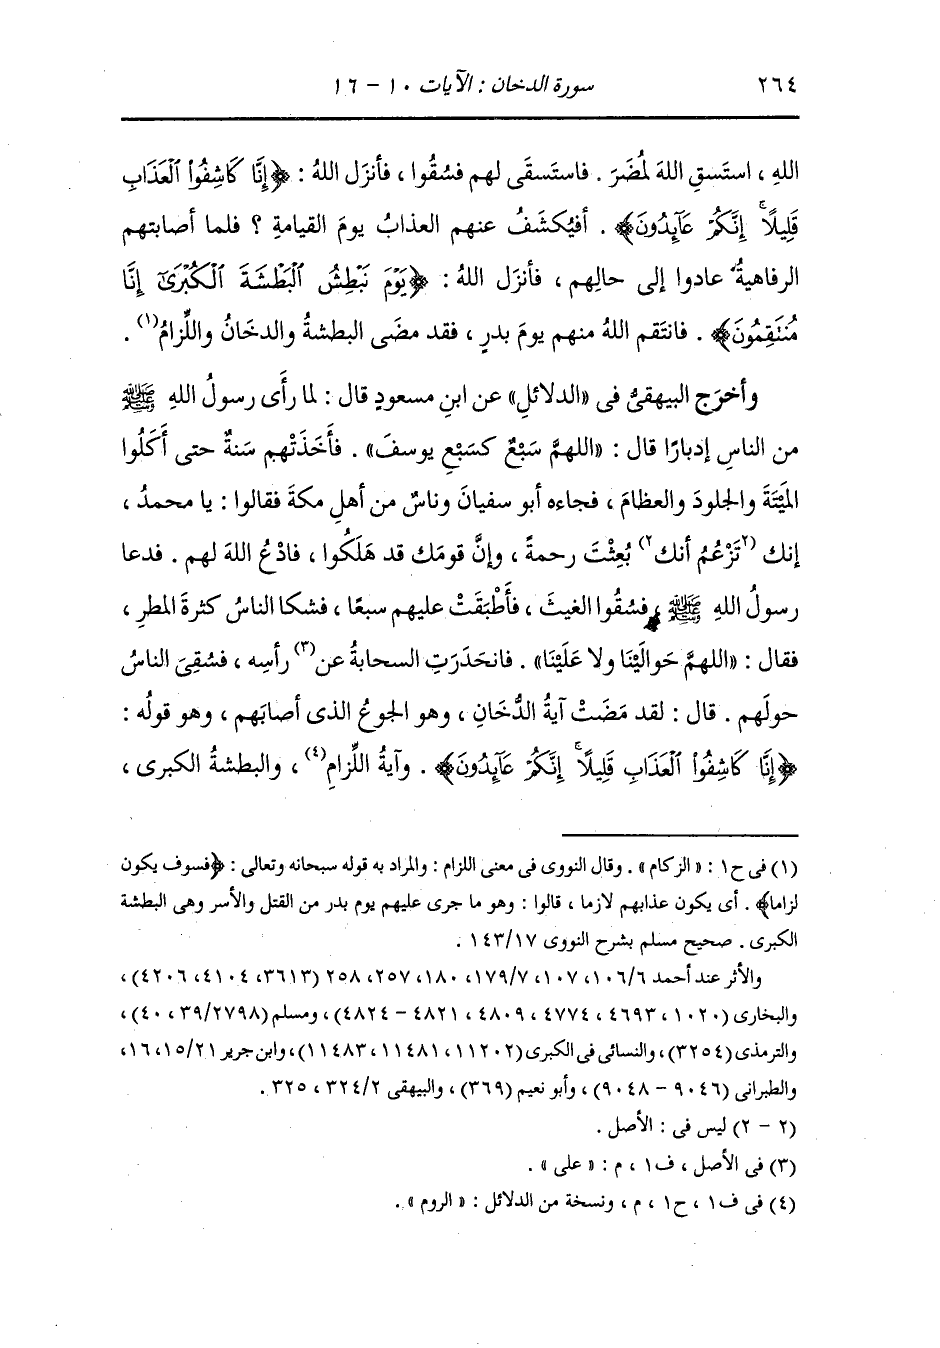 ٢٦٤ سورة الدخان : الآيات ١٠ - ١٦
اللهِ ، استَسقِ اللهَ لمُضَرَ . فاستَسقَى لهم فسُقُوا ، فأنزَل اللهُ : ﴿إِنَّا كَاشِفُواْ ٱلْعَذَابِ
قَلِيلًاۚ إِنَّكُمْ عَآئِدُونَ﴾ . أفيُكشَفُ عنهم العذابُ يومَ القيامةِ ؟ فلما أصابتهم
الرفاهيةُ عادوا إلى حالِهم ، فأنزَل اللهُ : ﴿يَوْمَ نَبْطِشُ ٱلْبَطْشَةَ ٱلْكُبْرَىٰٓ إِنَّا
مُنتَقِمُونَ﴾ . فانتَقم اللهُ منهم يومَ بدرٍ ، فقد مضَى البطشةُ والدخَانُ واللِّزامُ(١) .
وأخرَج البيهقىُّ فى «الدلائلِ» عن ابنِ مسعودٍ قال : لما رأَى رسولُ اللهِ ﷺ
من الناسِ إدبارًا قال : «اللهمَّ سَبْعٌ كسَبْعِ يوسفَ» . فأَخَذَتْهم سَنةٌ حتى أَكَلُوا
المَيْتَةَ والجلودَ والعظامَ ، فجاءه أبو سفيانَ وناسٌ من أهلِ مكةَ فقالوا : يا محمدُ ،
إنك (٢تَزْعُمُ أنك٢) بُعِثْتَ رحمةً ، وإنَّ قومَك قد هَلَكُوا ، فادْعُ اللهَ لهم . فدعا
رسولُ اللهِ ﷺ فسُقُوا الغيثَ ، فأَطْبَقَتْ عليهم سبعًا ، فشكا الناسُ كثرةَ المطرِ ،
فقال : «اللهمَّ حَوالَيْنَا ولا عَلَيْنَا» . فانحَدَرَتِ السحابةُ عن(٣) رأسِه ، فسُقِىَ الناسُ
حولَهم . قال : لقد مَضَتْ آيةُ الدُّخَانِ ، وهو الجوعُ الذى أصابَهم ، وهو قولُه :
﴿إِنَّا كَاشِفُواْ ٱلْعَذَابِ قَلِيلًاۚ إِنَّكُمْ عَآئِدُونَ﴾ . وآيةُ اللِّزامِ(٤) ، والبطشةُ الكبرى ،
(١) فى ح١ : « الزكام » . وقال النووى فى معنى اللزام : والمراد به قوله سبحانه وتعالى : ﴿فسوف يكون
لزاما﴾ . أى يكون عذابهم لازما ، قالوا : وهو ما جرى عليهم يوم بدر من القتل والأسر وهى البطشة
الكبرى . صحيح مسلم بشرح النووى ١٤٣/١٧ .
والأثر عند أحمد ١٠٦/٦، ١٠٧، ١٧٩/٧، ١٨٠، ٢٥٧، ٢٥٨ (٣٦١٣، ٤١٠٤، ٤٢٠٦) ،
والبخارى (١٠٢٠ ، ٤٦٩٣ ، ٤٧٧٤ ، ٤٨٠٩ ، ٤٨٢١ - ٤٨٢٤) ، ومسلم (٣٩/٢٧٩٨ ، ٤٠) ،
والترمذى (٣٢٥٤) ، والنسائى فى الكبرى (١١٢٠٢ ، ١١٤٨١ ، ١١٤٨٣) ، وابن جرير ١٥/٢١، ١٦،
والطبرانى (٩٠٤٦ - ٩٠٤٨) ، وأبو نعيم (٣٦٩) ، والبيهقى ٣٢٤/٢ ، ٣٢٥ .
(٢ - ٢) ليس فى : الأصل .
(٣) فى الأصل ، ف١ ، م : « على » .
(٤) فى ف١ ، ح١ ، م ، ونسخة من الدلائل : « الروم » .